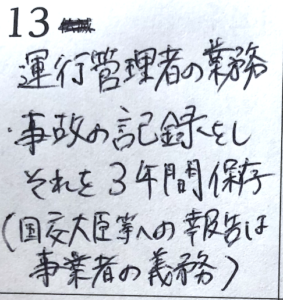 13
運行管理者の業務
・事故の記録をし
それを3年間保存
(国交大臣等への報告は
事業者の義務)